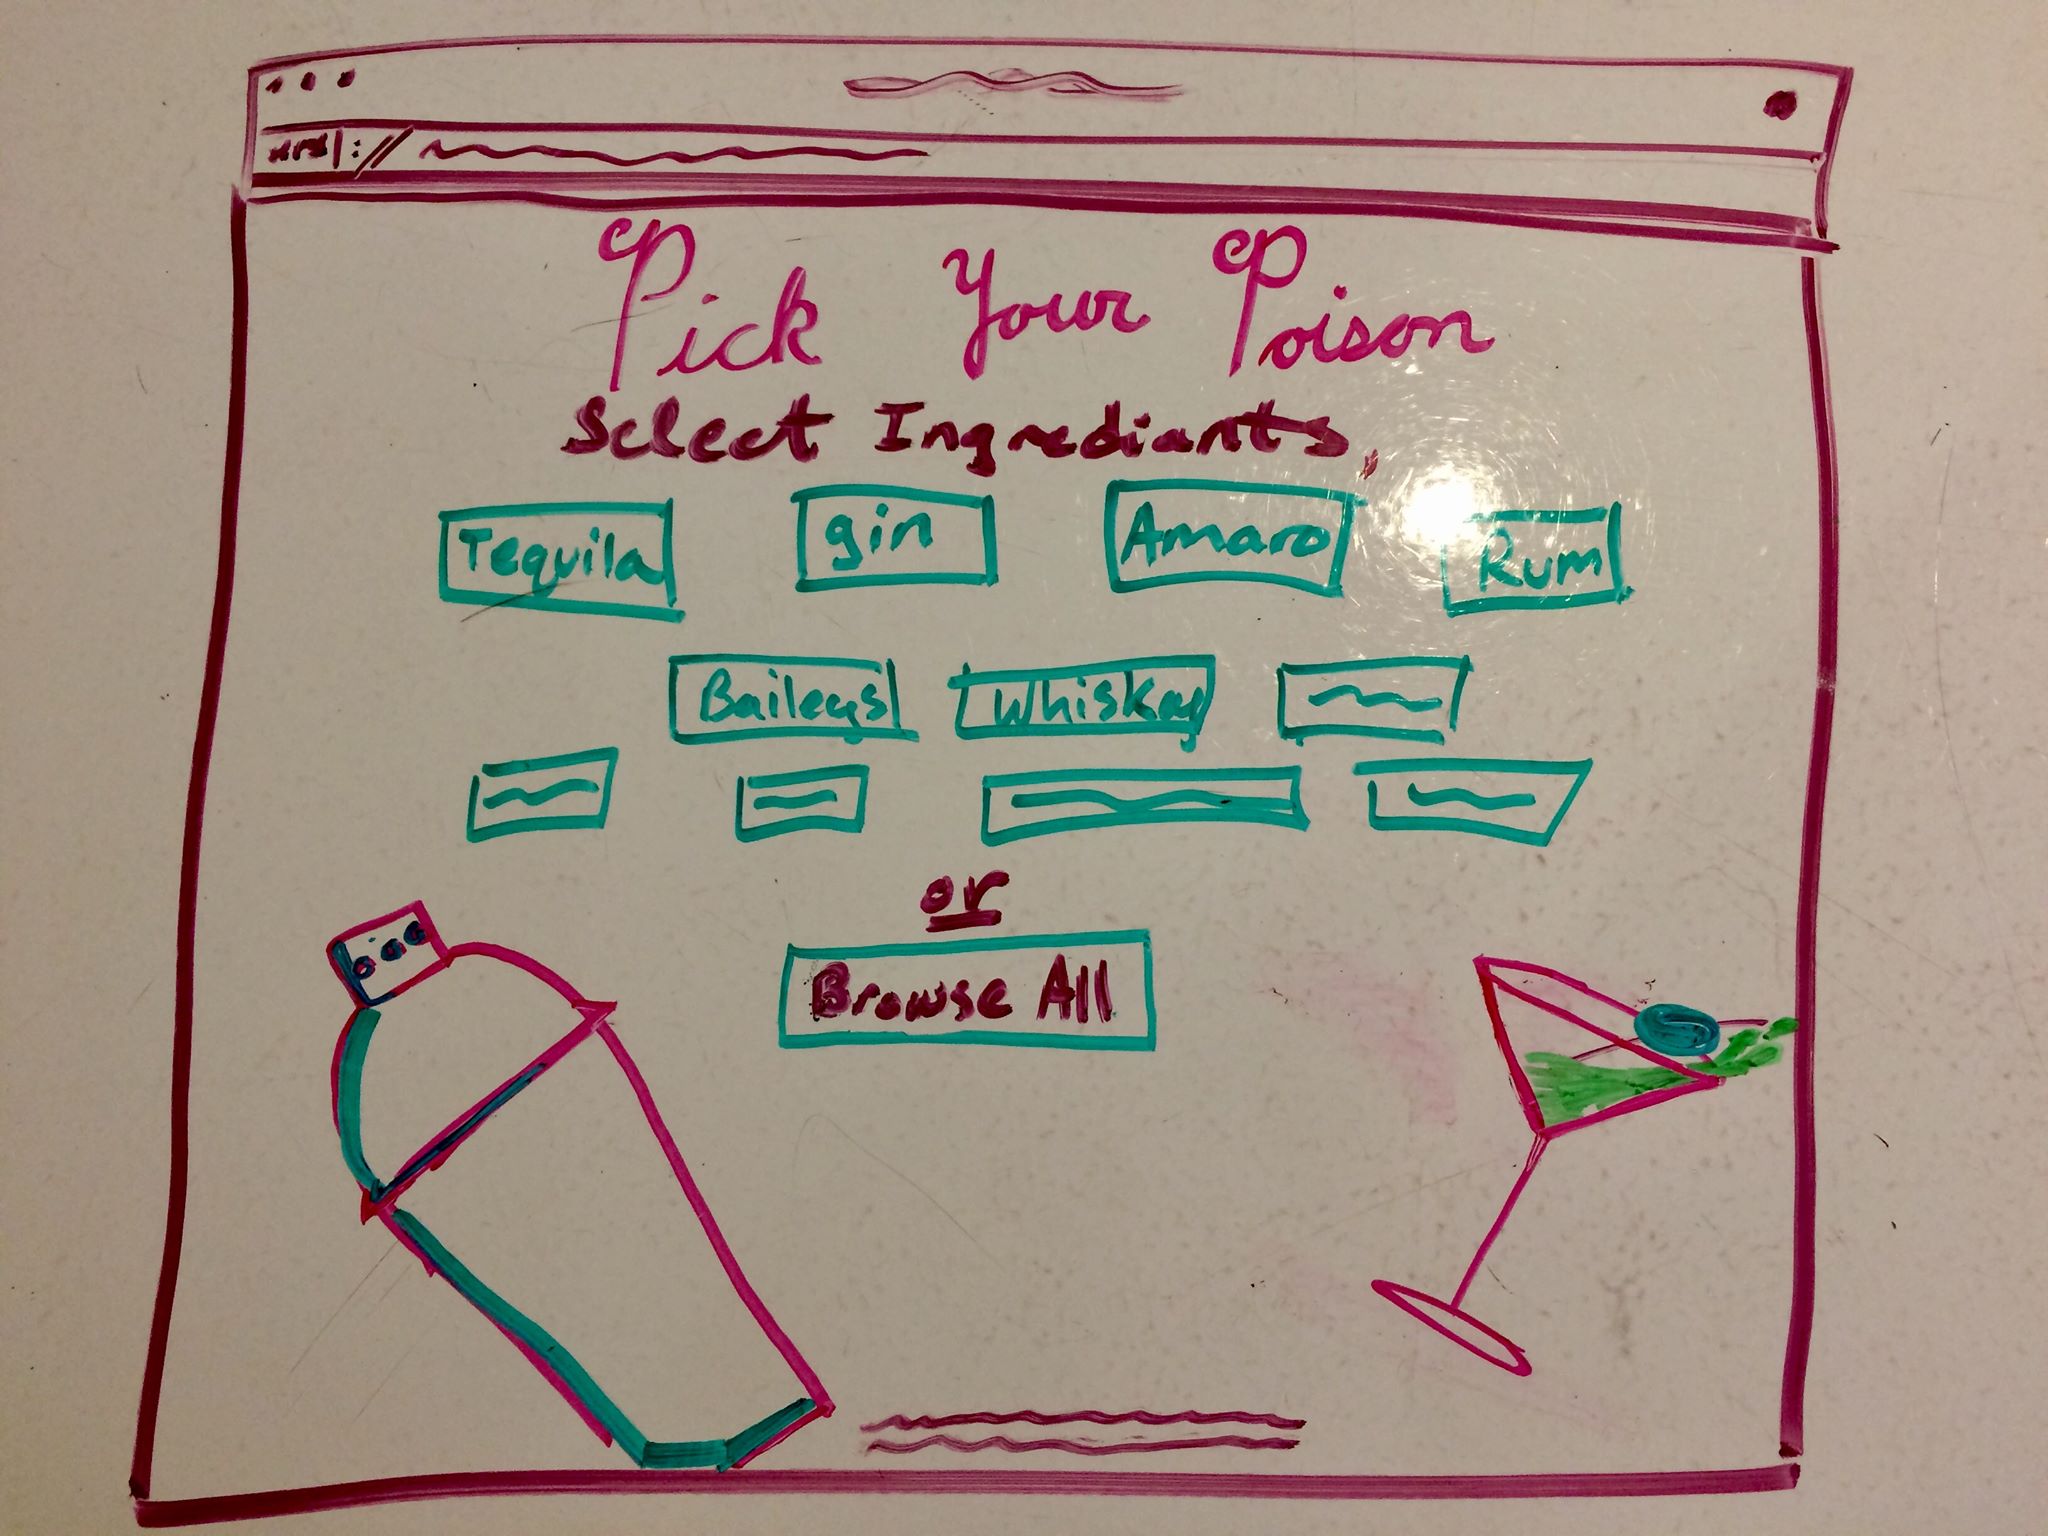 url://
Pick Your Poison
Select Ingrediants,
Tequila gin Amaro Rum
Baileys Whiskey
or
Browse All